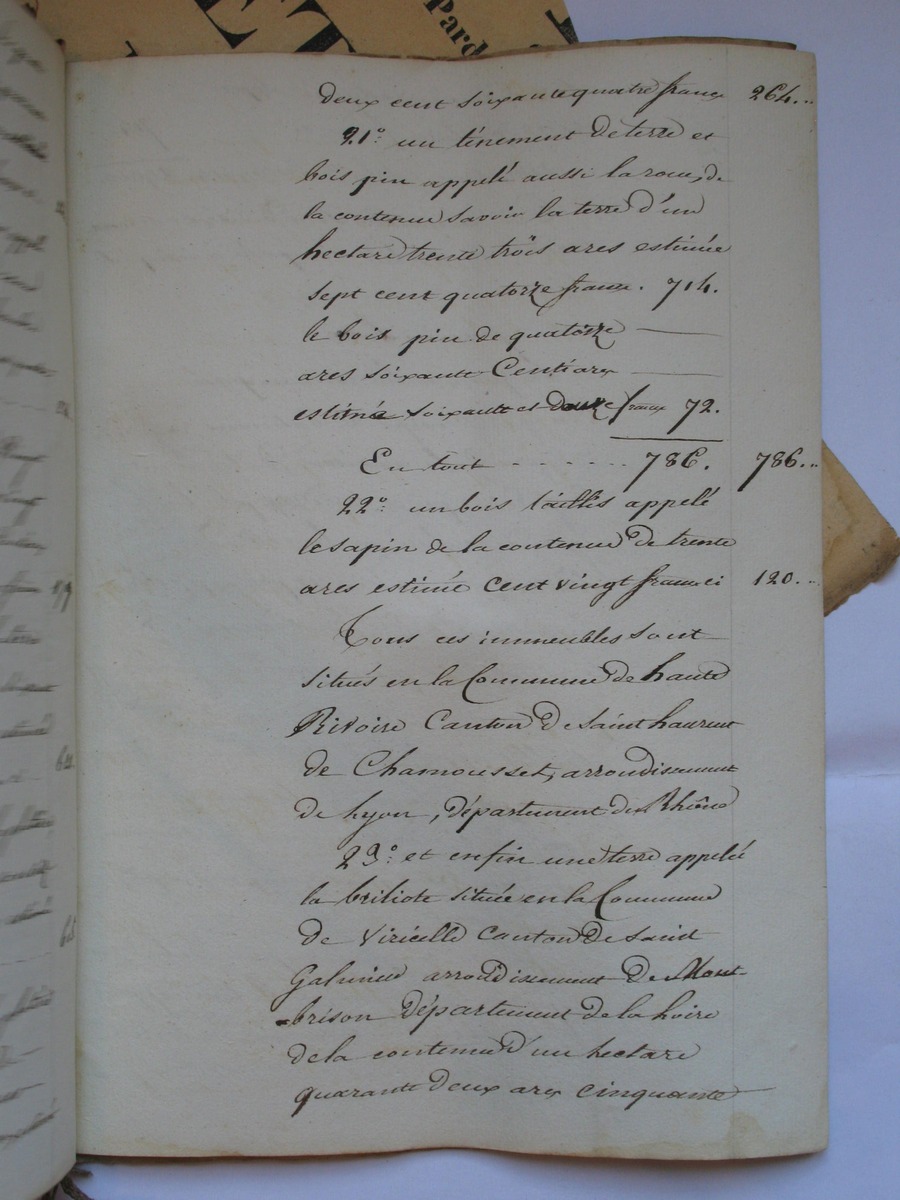 ET
Pard
deux cent soixante quatre francs 264...
21°: un ténement de terre et
bois pin appelé aussi la roue, de
la contenue savoir la terre d'un
hectare trente trois ares estimée
sept cent quatorze francs. 714.
le bois pin de quatorze
ares soixante Centiares
estimé soixante et douze francs 72.
En tout - - - - - - 786. 786...
22°: un bois taillis appelé
le sapin de la contenue de trente
ares estimé cent vingt francs ci 120...
Tous ces immeubles sont
situés en la Commune de haute
Rivoire Canton de Saint Laurent
de Chamousset, arrondissement
de Lyon, département du Rhône
23°: et enfin une terre appelée
la briliote située en la Commune
de Viricelle Canton de Saint
Galmier arrondissement de Mont-
-brison département de la Loire
de la contenue d'un hectare
quarante deux ares cinquante